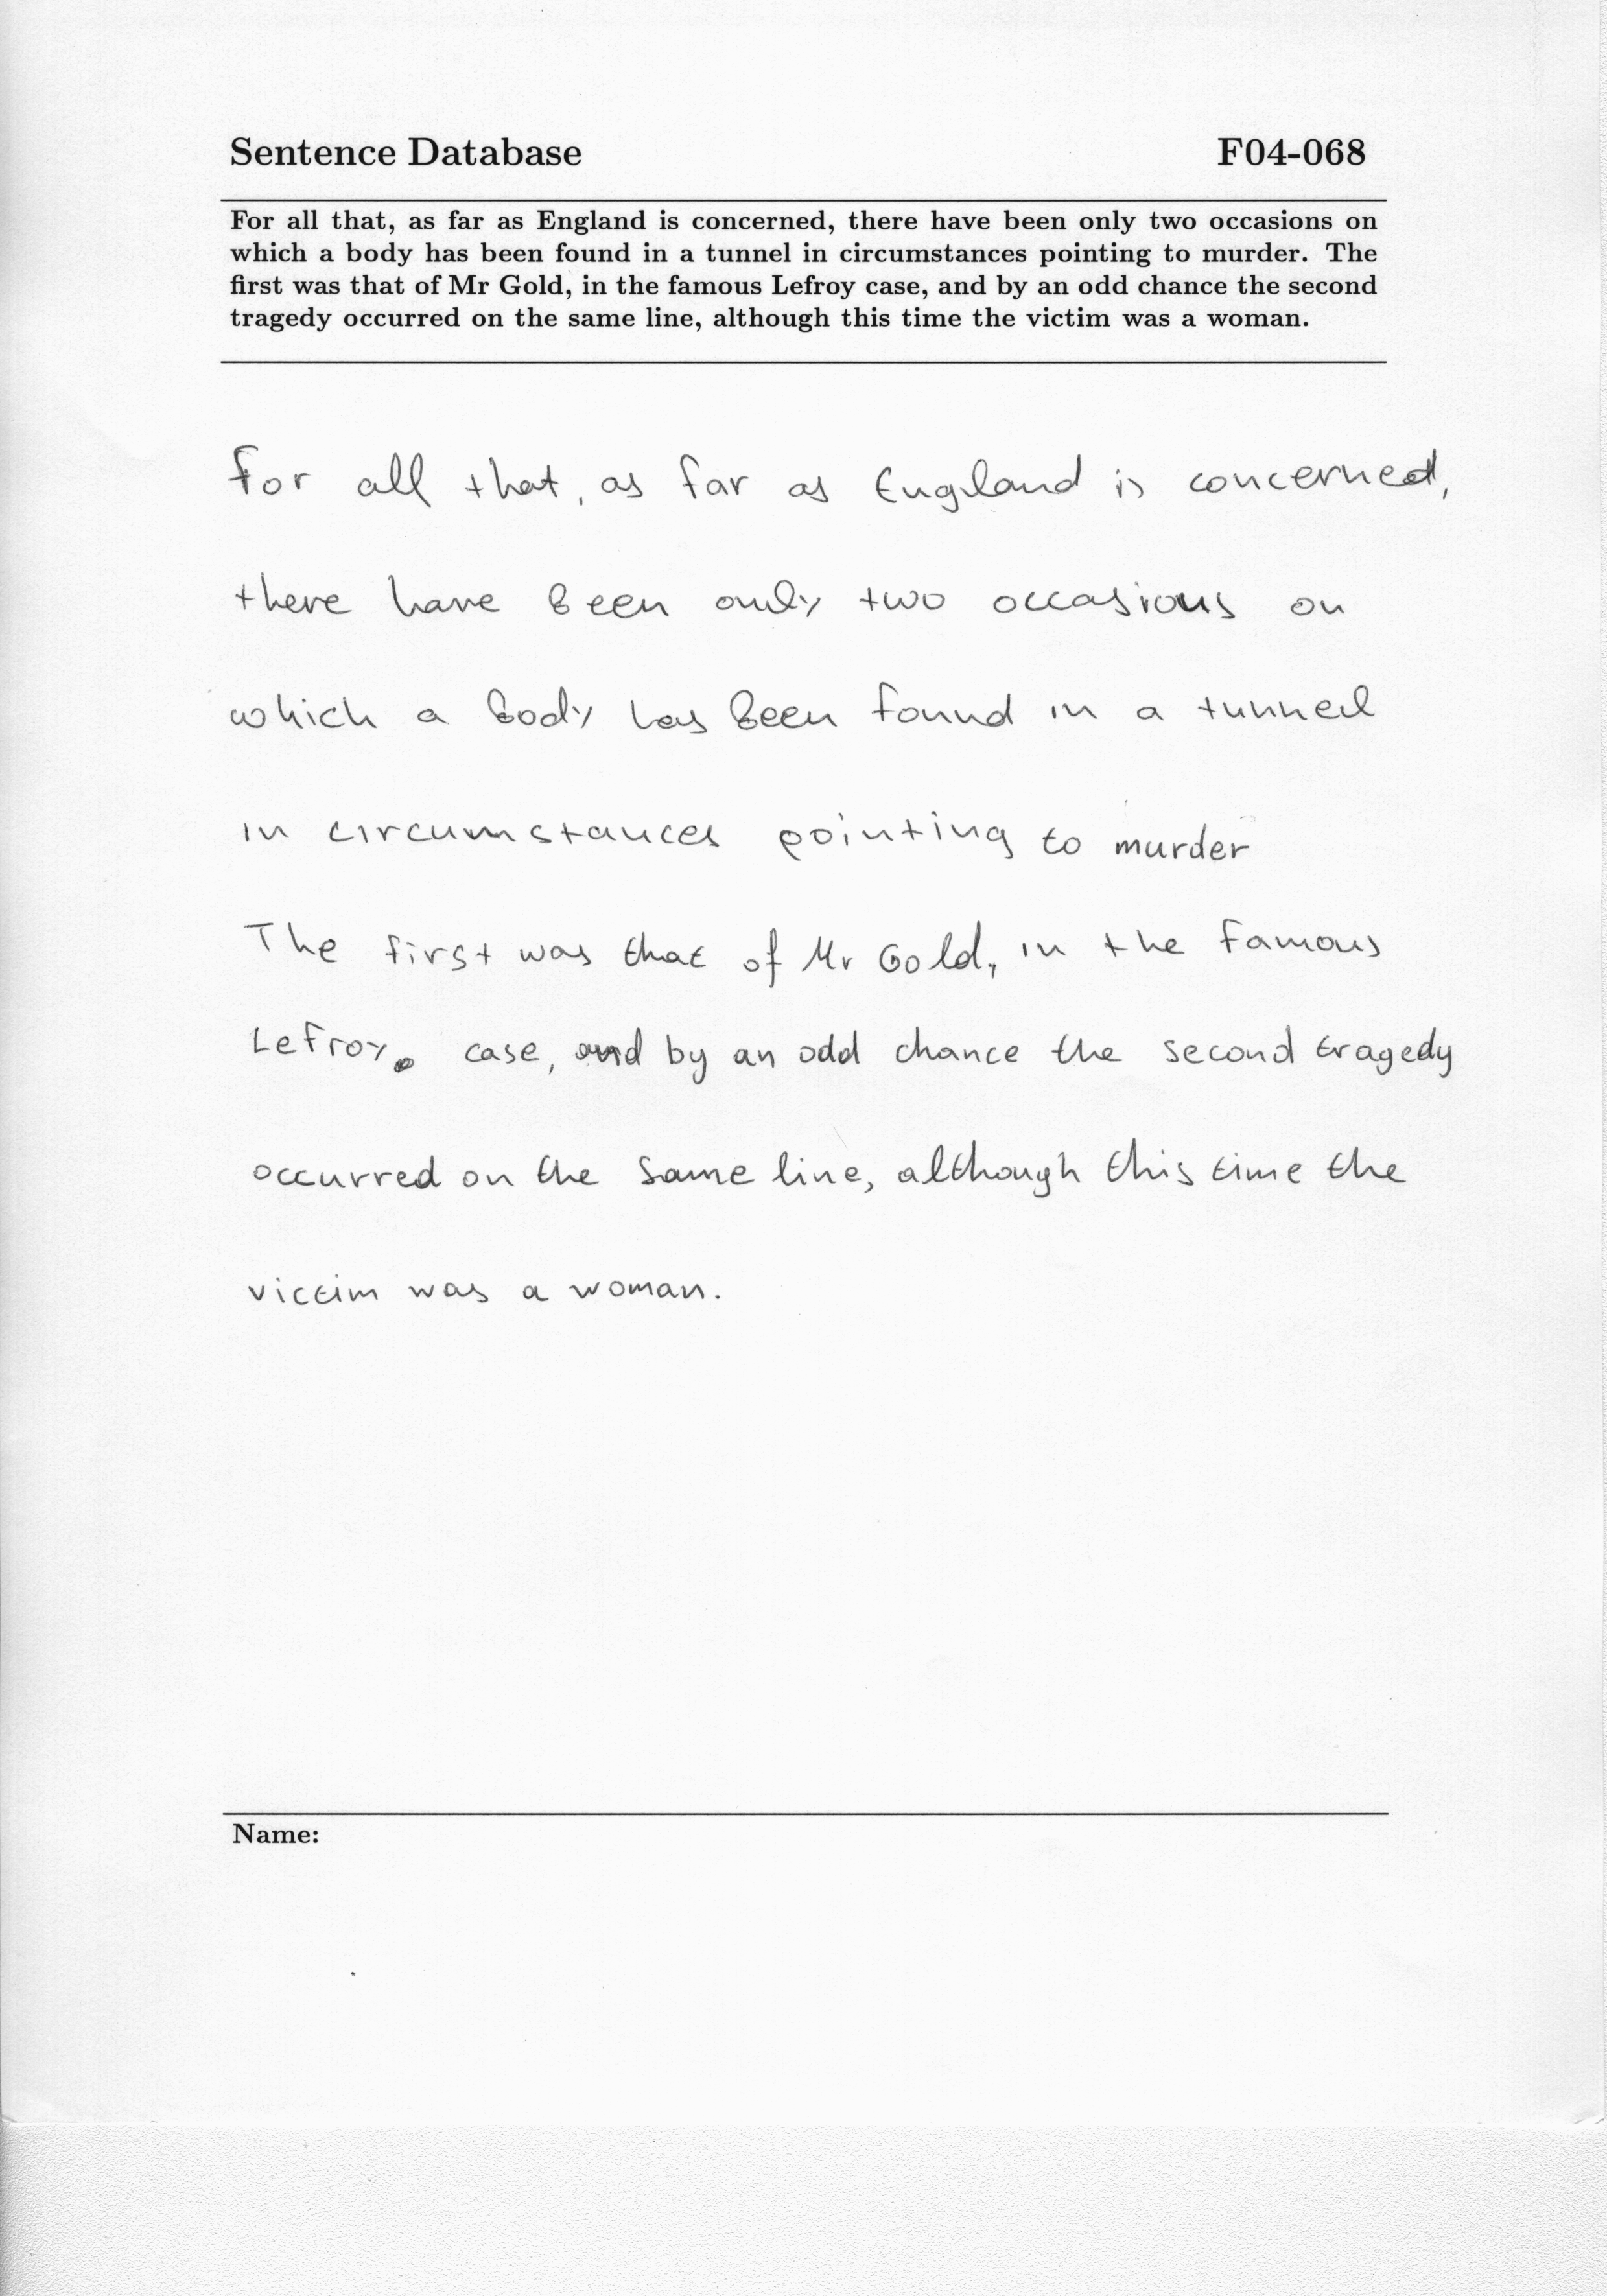 Sentence Database F04-068
For all that, as far as England is concerned, there have been only two occasions on
which a body has been found in a tunnel in circumstances pointing to murder. The
first was that of Mr Gold, in the famous Lefroy case, and by an odd chance the second
tragedy occurred on the same line, although this time the victim was a woman.
For all that, as far as England is concerned,
there have been only two occasions on
which a body has been found in a tunnel
in circumstances pointing to murder
The first was that of Mr Gold, in the famous
Lefroy. case, and by an odd chance the second tragedy
occurred on the same line, although this time the
victim was a woman.
Name: